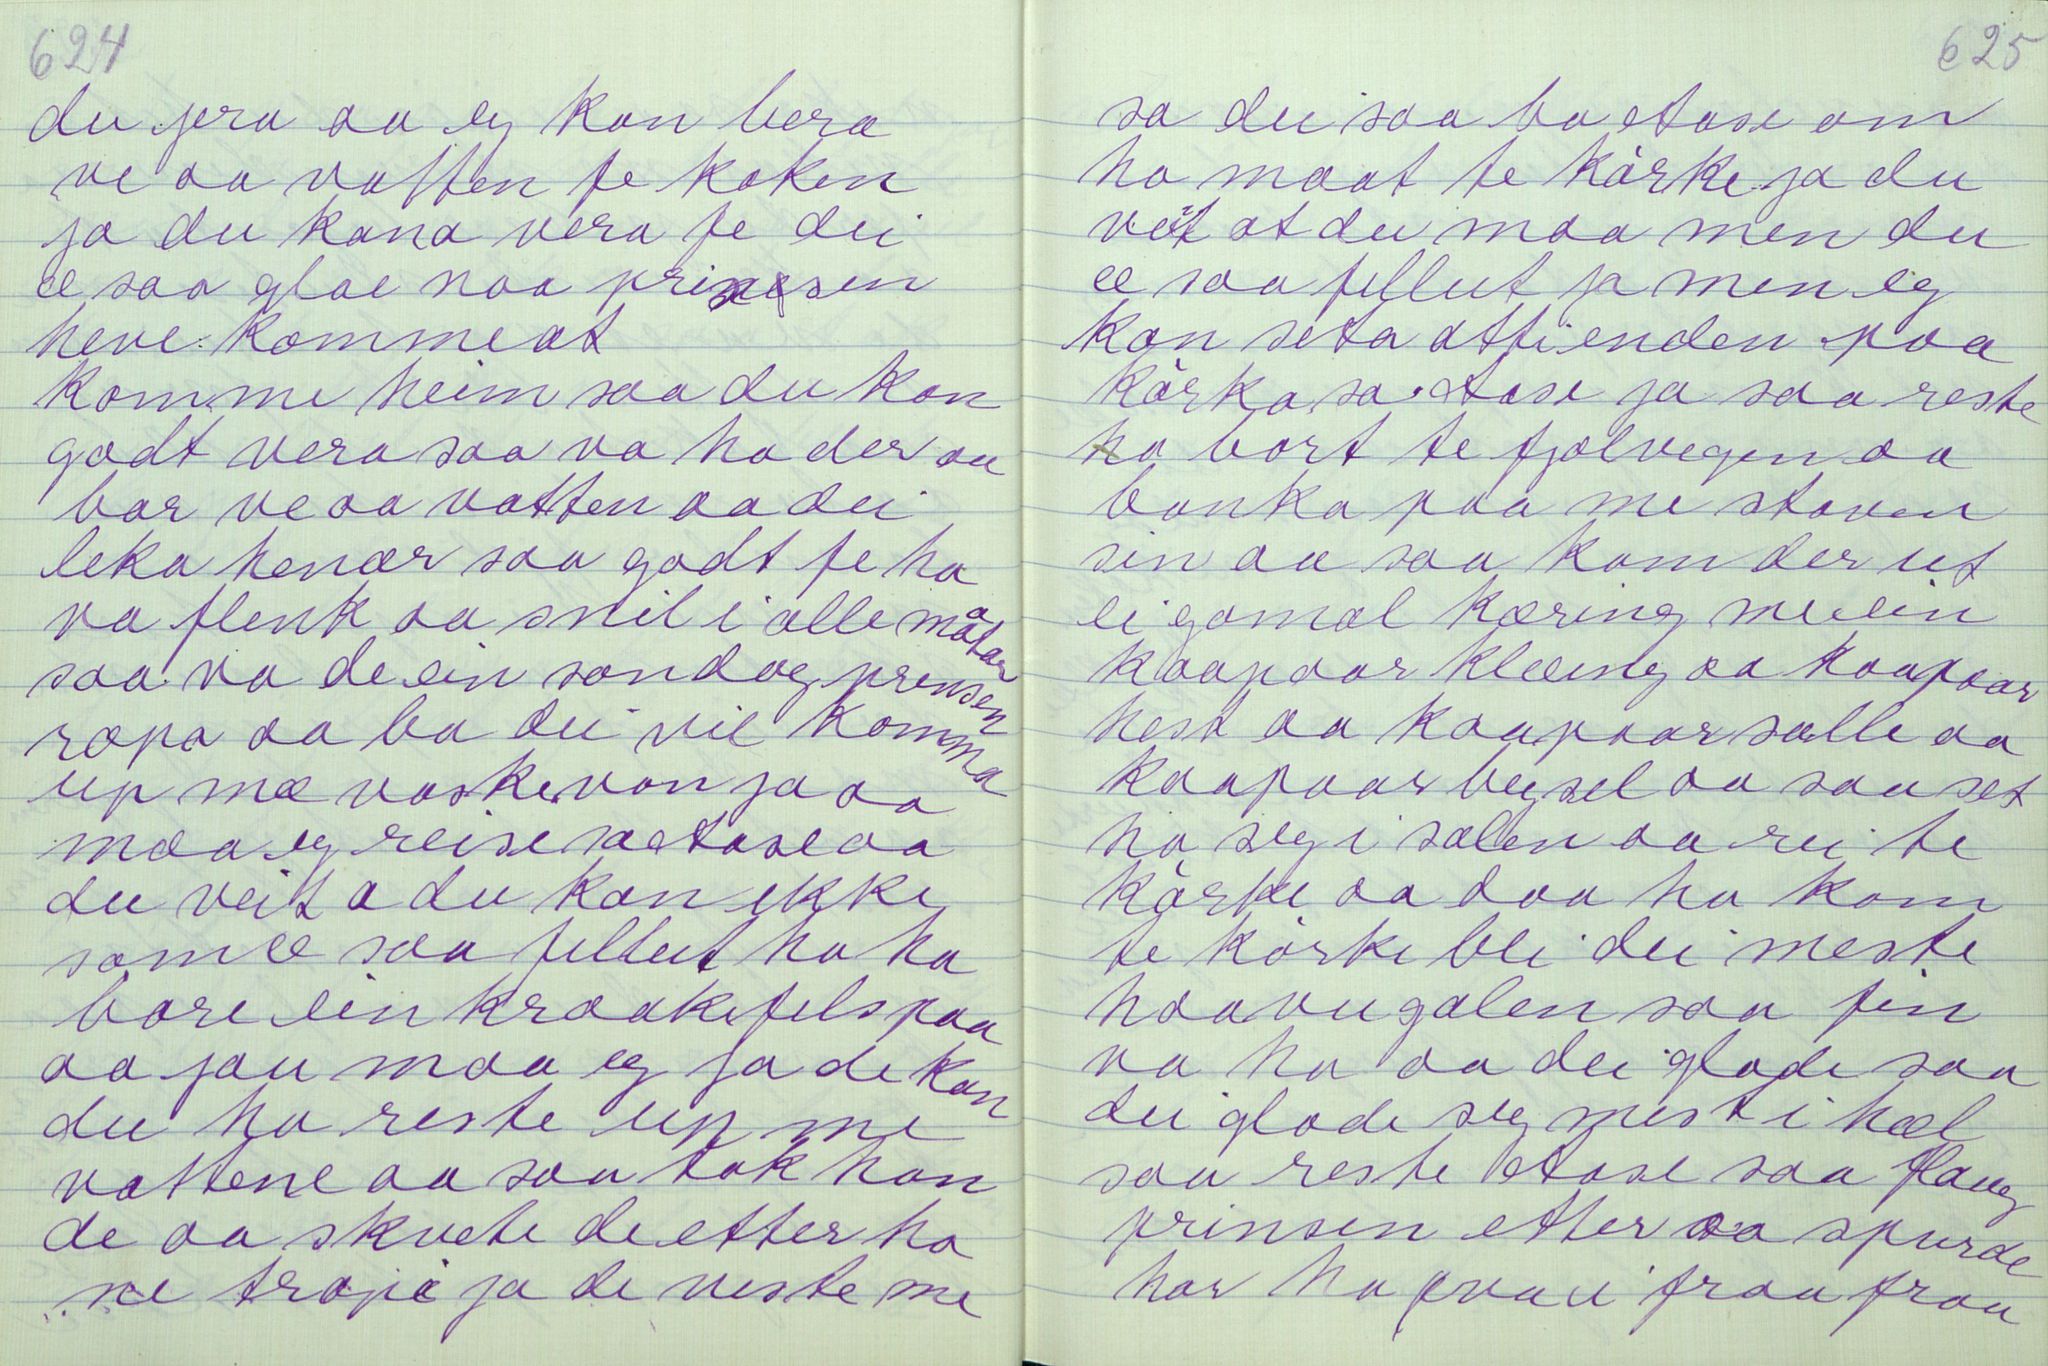 624
du jera aa eg kan bera
ve aa vatten te koken
ja du kana vera fe dei
æ saa glae naa prinsen
heve kommeat
komme heim saa du kan
godt vera saa va ho der aa
bar ve aa vatten aa dei
leka henar saa godt fe ho
va flenk aa snil i alle måtar
saa va de ein sondag prinsen
ropa aa ba dei vil komma
up mæ vaskevan ja aa
maa eg reise sa etase aa
du veit a du kan ikke
som æ saa fellut ho ha
bare ein kraakefels paa
aa jau maa eg ja de kan
du ho reste up me
vattene aa saa tok han
de aa skvete de etter ho
ne trapi ja de neste me
625
sa dei saa ba etase om
ho maat te kårke ja du
veit at du maa men du
æ saa fellut ja men eg
kan seta atfienden paa
kårka sa etase ja saa reste
ho bort te fjølvegen aa
banka paa me staven
sin aa saa kom der ut
ei gamal kæring me ein
kaapaar klæing aa kaapaar
hest aa kaapaar salle aa
kaapaar beysel aa saa set
ho seg i salen aa rei te
kårke aa daa ho kom
te kårke blei dei meste
haavu galen saa fin
va ho aa dei glade saa
dei glade seg mest i hæl
saa reste etase saa flaug
prinsen etter aa spurde
har ho qvau i fraa fraa